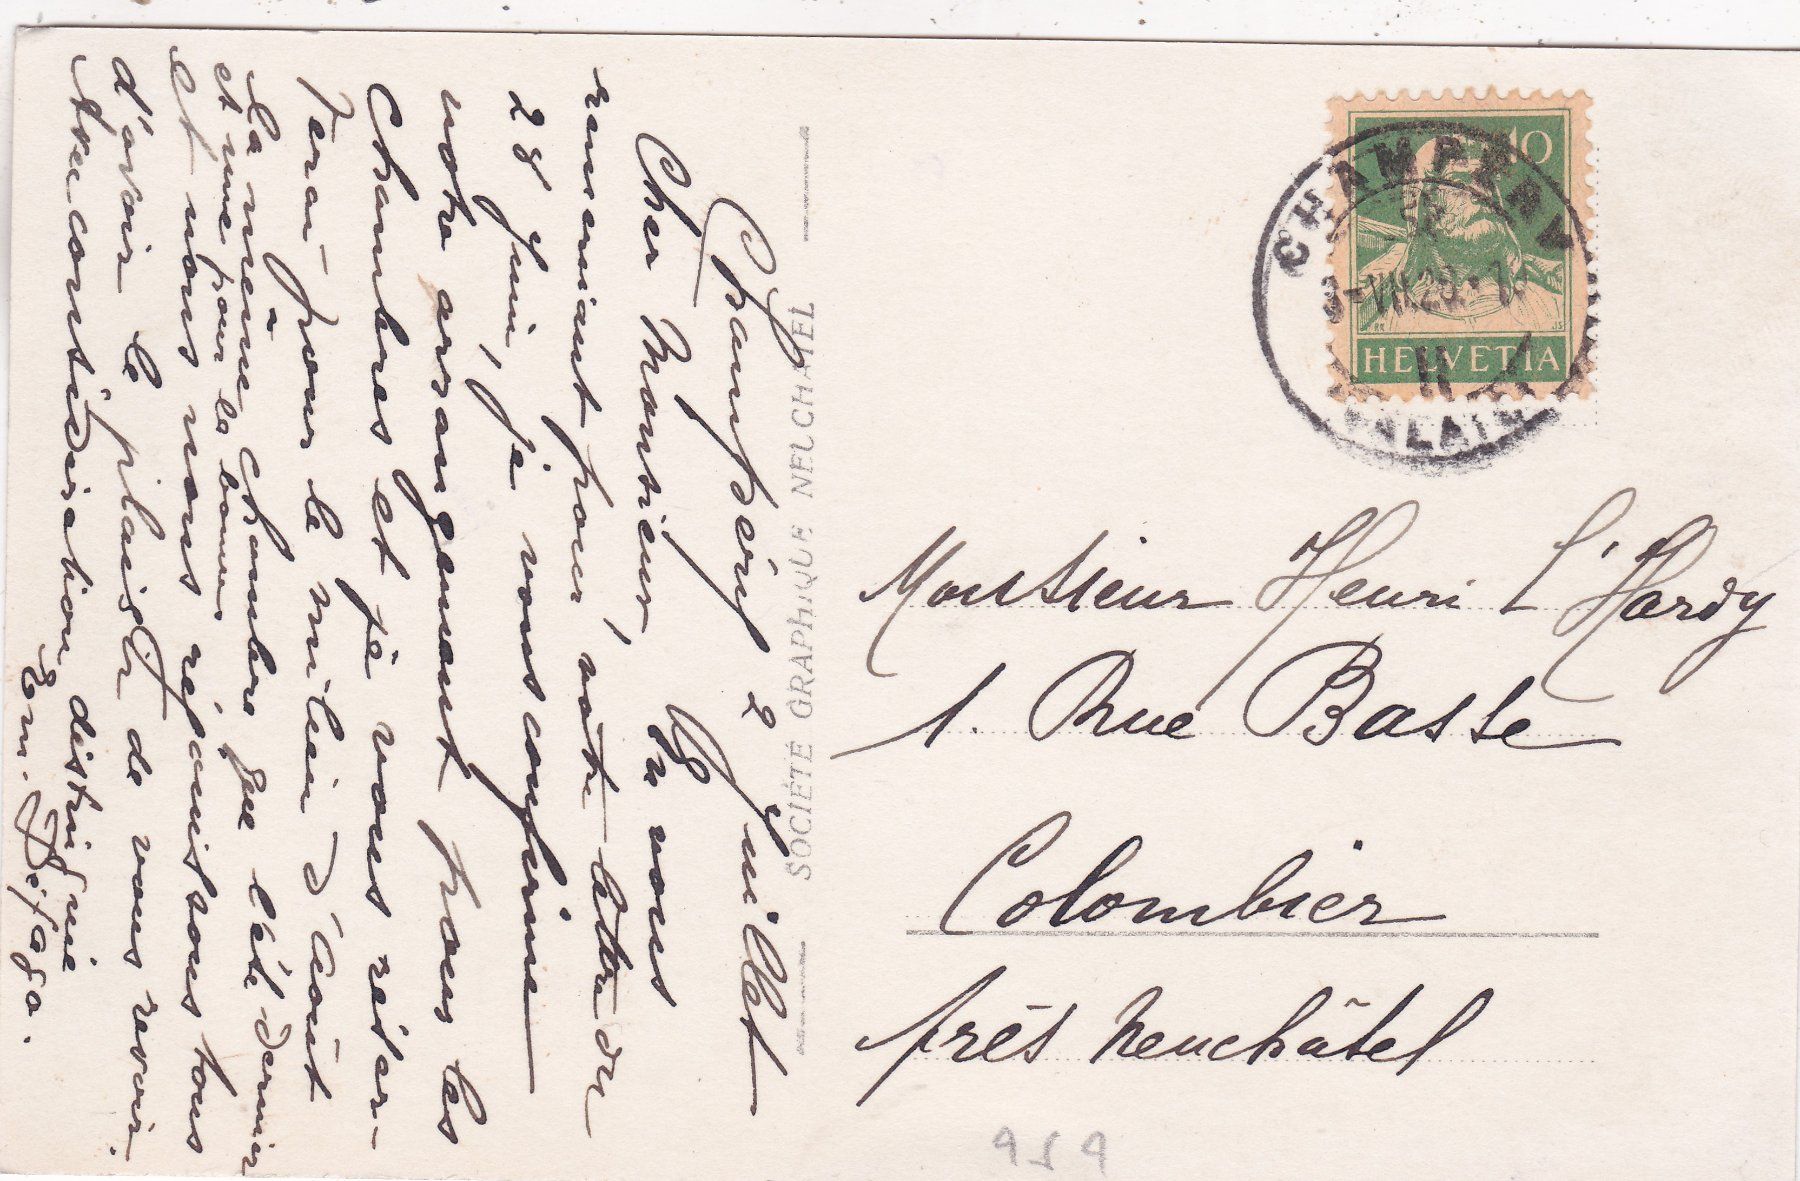 Champéry 2 Juillet
Cher Monsieur, En vous
remerciant pour votre lettre du
28 Juin, je vous confirme
notre arrangement pour les
Chambres et je vous réser-
verai pour le milieu d'août
la même chambre que l'été dernier
et une pour la bonne
et nous nous réjouissons tous
d'avoir le plaisir de vous revoir.
Avec considération distinguée
Em. Défago.
SOCIÉTÉ GRAPHIQUE NEUCHATEL
10
HELVETIA
CHAMPÉRY
VII.20
VALAIS
Monsieur Henri L'Hardy
1. Rue Basse
Colombier
près Neuchâtel